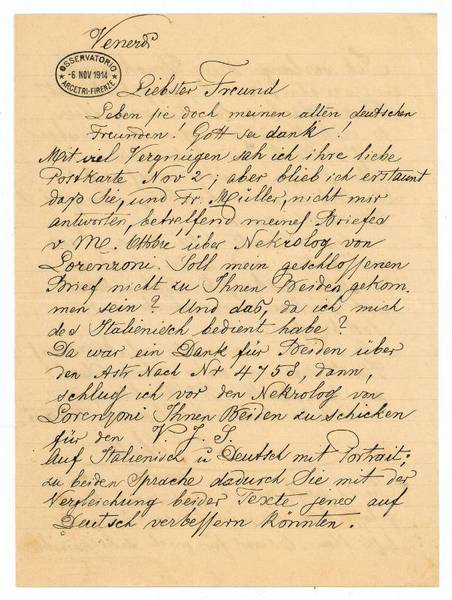 Venerdi
OSSERVATORIO
-6 NOV 1914
ARCETRI-FIRENZE
Liebster Freund
Leben sie doch meinen alten deutschen
Freunden! Gott sei dank!
Mit viel Vergnügen sah ich ihre liebe
Postkarte Nov 2; aber blieb ich erstaunt
daß Sie, und Fr. Müller, nicht mir
antworten, betreffend meines Briefes
v. M. Ottbre über Nekrolog von
Lorenzoni. Soll mein geschlossenen
Brief nicht zu Ihnen Beiden gekom
men sein? Und daß, da ich mich
des Italienisch bedient habe?
Da war ein Dank für Beiden über
den Astr Nach Nr 4758, dann,
schlug ich vor den Nekrolog von
Lorenzoni Ihnen Beiden zu schicken
für den V. J. S.
Auf Italienisch u Deutsch mit Portrait;
zu beiden Sprache dadurch Sie mit der
Vergleichung beider Texte jenes auf
Deutsch verbessern konnten.